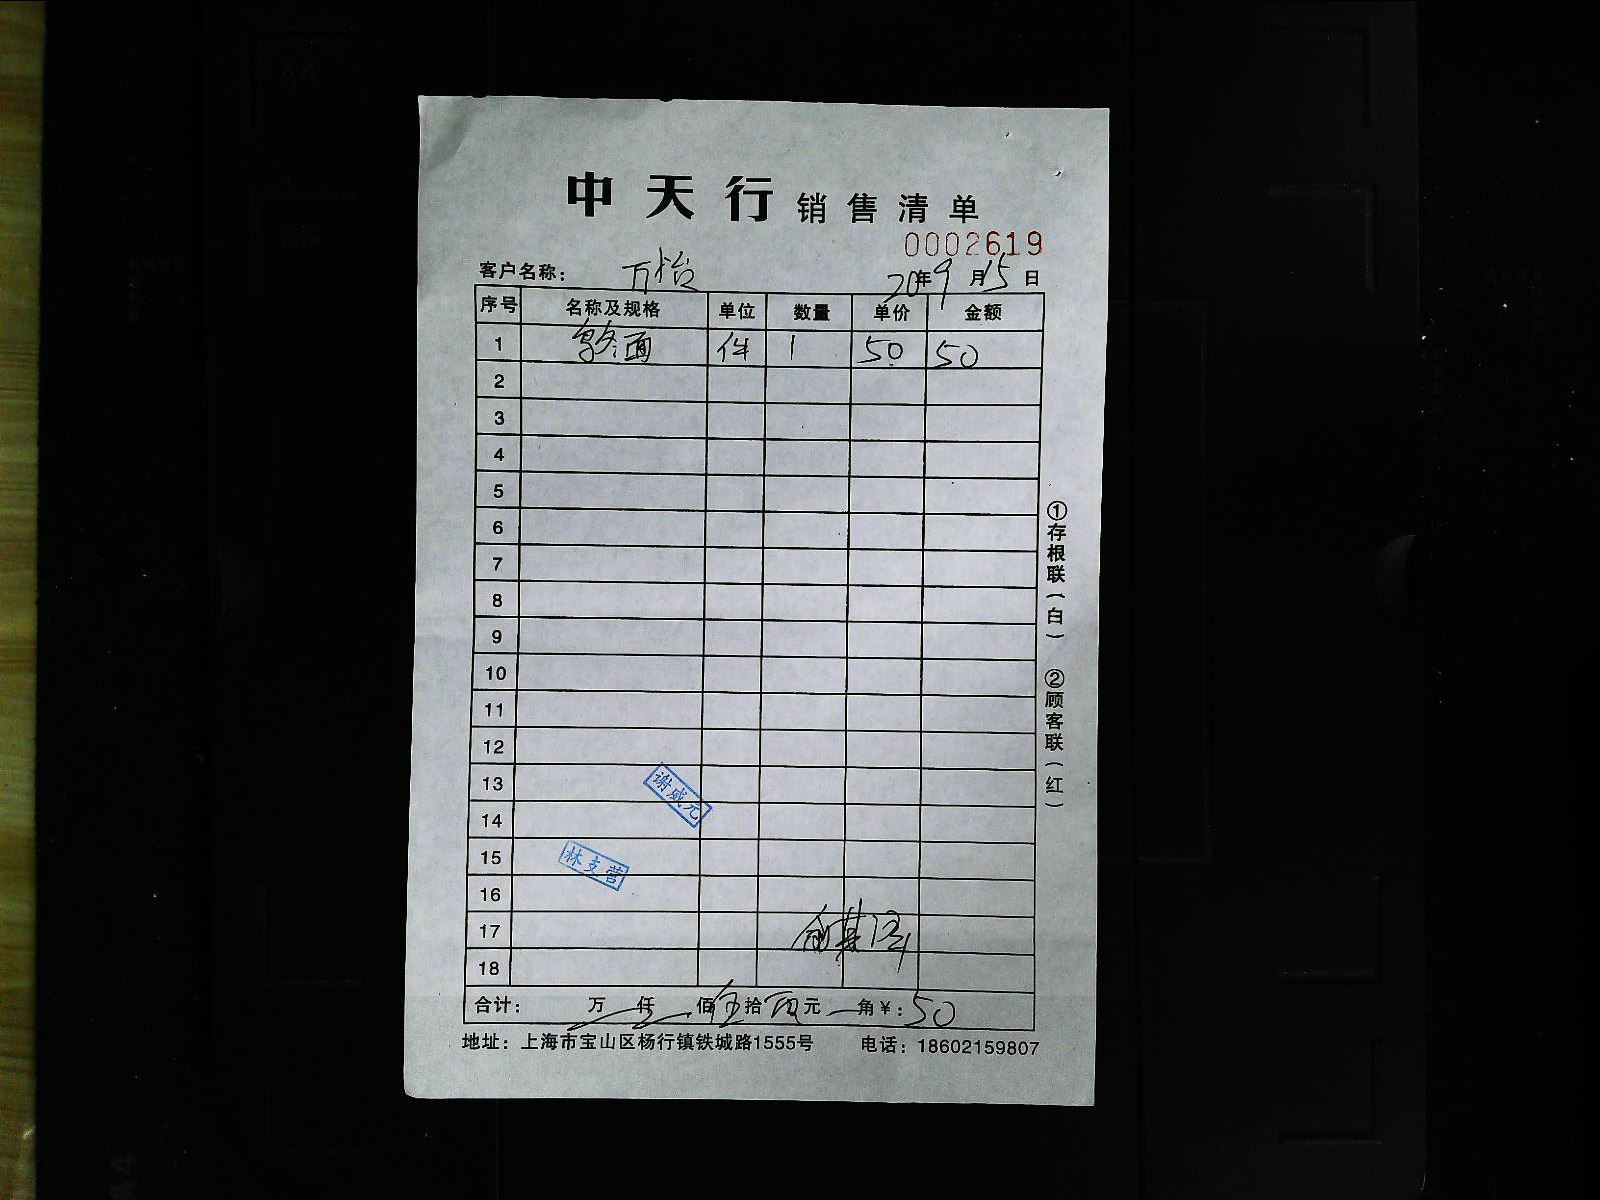 中天行销售清单
0002619
客户名称： 万怡 20年9月15日
序号 名称及规格 单位 数量 单价 金额
1 乌冬面 件 1 50 50
2
3
4
5
6
7
8
9
10
11
12
13
谢威元
14
15
林支营
16
17
18
合计： 万 仟 佰 伍拾 元 角￥：50
地址：上海市宝山区杨行镇铁城路1555号 电话：18602159807
①存根联（白） ②顾客联（红）